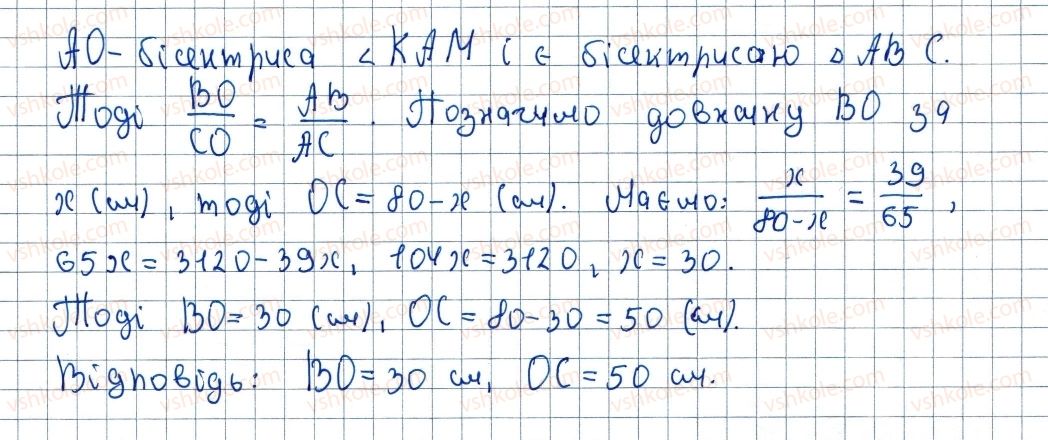 AO - бісектриса ∠KAM і є бісектрисаю △ABC.
Тоді BO/CO = AB/AC. Позначимо довжину BO зя
x (см), тоді OC = 80 - x (см). Маємо: x/(80-x) = 39/65,
65x = 3120 - 39x, 104x = 3120, x = 30.
Тоді BO = 30 (см), OC = 80 - 30 = 50 (см).
Відповідь: BO = 30 см, OC = 50 см.